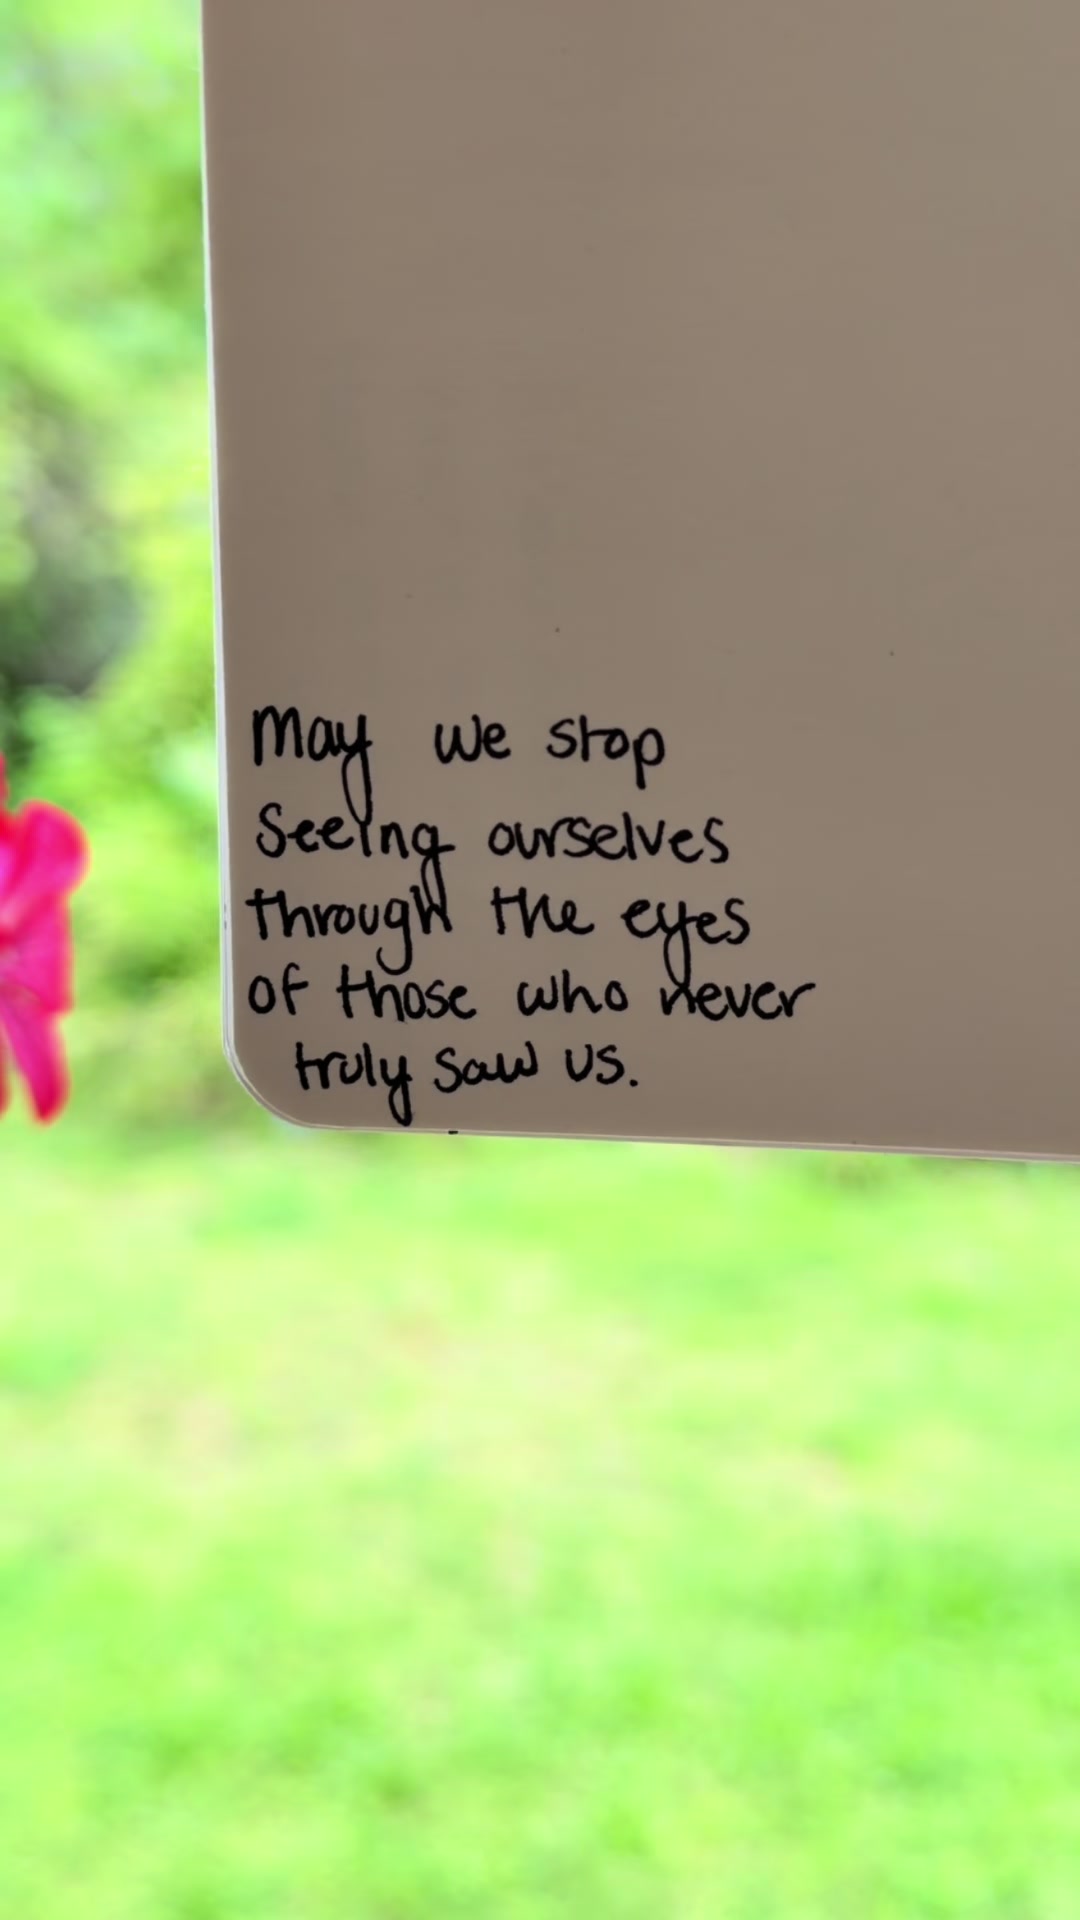 May we stop
Seeing ourselves
through the eyes
of those who never
truly saw us.